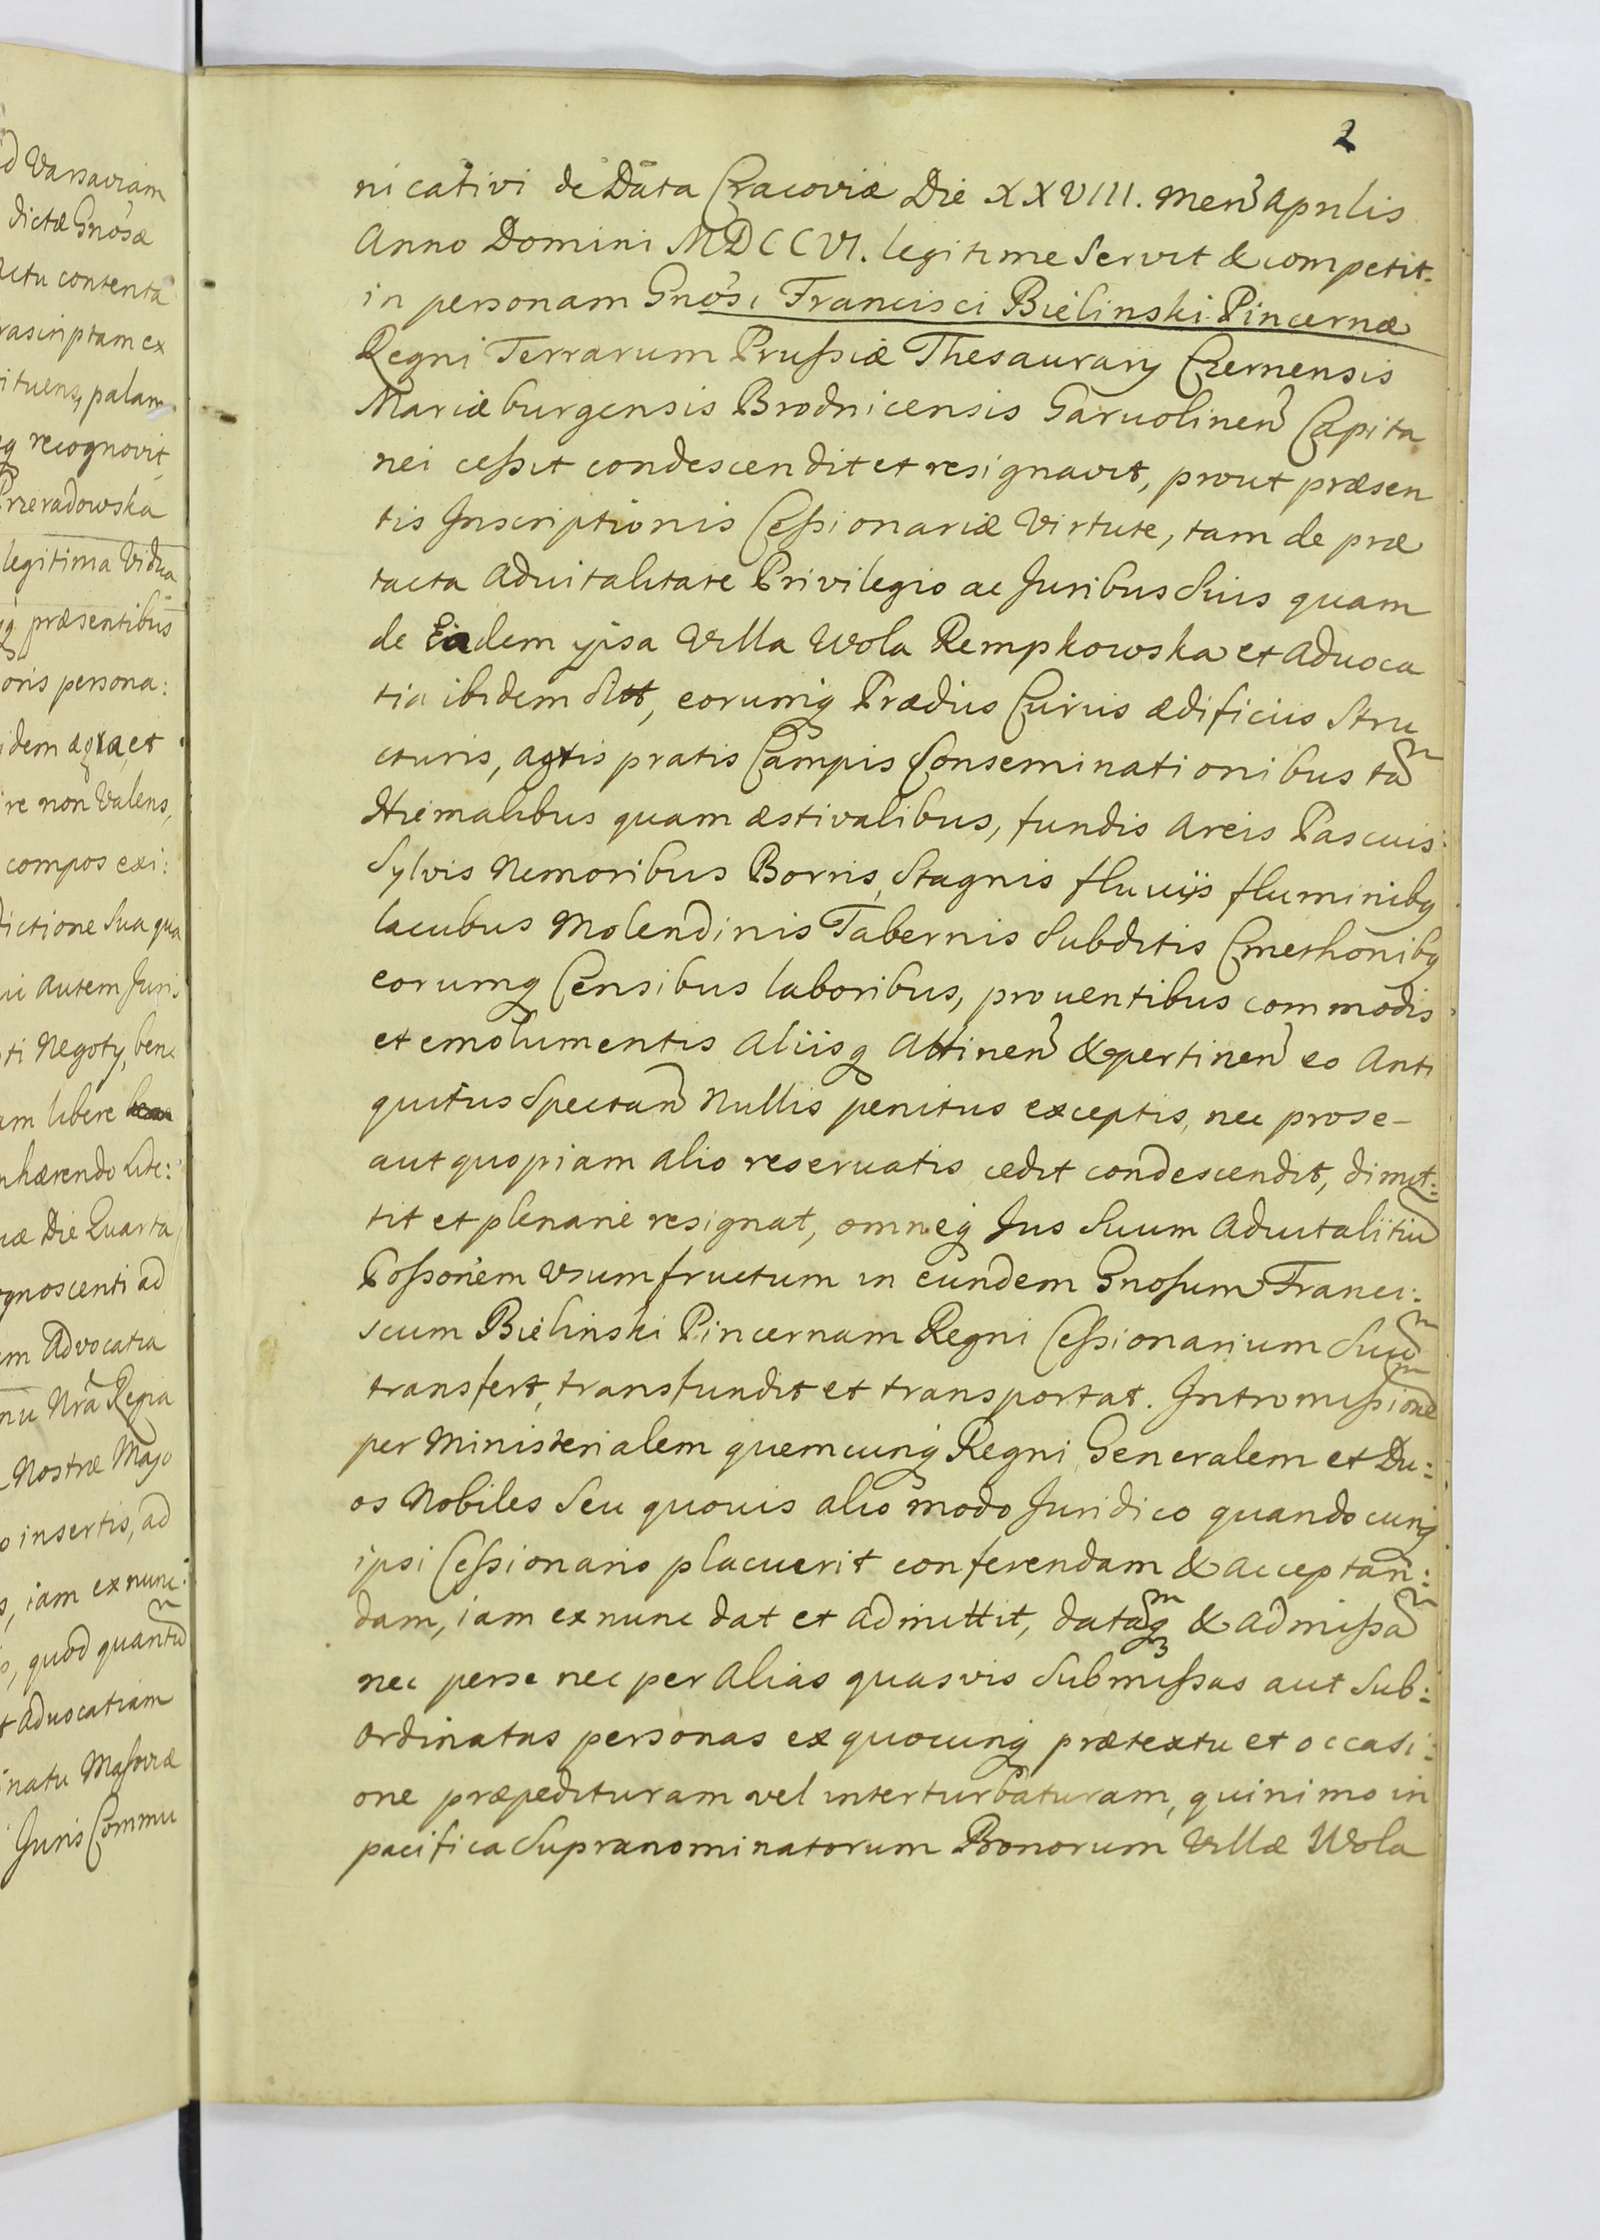 d Varsaviam
dictæ Gnosæ
actu contenta
rascriptam ex
palam
recognovit
Przeradowska
legitima Vidua
præsentibus
oris persona:
idem ægra, et
re non Valens,
compos exi:
dictione Sua qua
autem Juris
ti Negoty, bene
am libere
nhærendo Lite:
uæ Die Quarta
gnoscenti ad
em Advocatia
nu Nra Regia
Nostræ Majo
o insertis, ad
s, iam ex nunc:
o, quod quantu
t aduocatiam
inatu Masoviæ
Juris Commu
2
nicativi de Data Cracoviæ Die XXVIII. Men Aprilis
Anno Domini MDCCVI. legitime Servit & competit.
in personam Gnosi Francisci Bielinski Pincernæ
Regni Terrarum Prussiæ Thesaurarij Czernensis
Mariæburgensis Brodnicensis Garuolinen Capita
nei cessit condescendit et resignavit, prout præsen
tis Inscriptionis Cessionariæ Virtute, tam de præ
tacta Aduitalitate Privilegio ac Juribus Suis quam
de Eadem ipsa Villa Wola Rempkowska et Aduoca
tia ibidem Sitt, eorumq Prædiis Curiis ædificiis Stru
cturis, agris pratis Campis Conseminationibus ta
Hiemalibus quam æstivalibus, fundis Areis Pascuis
Sylvis Nemoribus Borris, Stagnis fluuijs fluminibq
lacubus Molendinis Tabernis Subditis Cmethonibq
eorumq Censibus laboribus, prouentibus commodis
et emolumentis Aliisq Attinen & pertinen eo Anti
quitus Spectan Nullis penitus exceptis, nec pro se-
aut quopiam Alio reseruatis cedit condescendit, dimit:
tit et plenarie resignat, omneq Jus Suum Aduitalitiu
Possonem Usumfructum in eundem Gnosum Franci:
scum Bielinski Pincernam Regni Cessionarium Suu
transfert, transfundit et transportat. Intromissione
per Ministerialem quemcunq Regni Generalem et Du:
os Nobiles Seu quouis alio modo Juridico quandocunq
ipsi Cessionario placuerit conferendam & acceptan:
dam, iam ex nunc dat et Admittit, dataq & Admissa
nec per se nec per Alias quasvis Submissas aut Sub:
Ordinatas personas ex quocunq prætextu et occasi:
one præpedituram vel interturbaturam, quinimo in
pacifica Supranominatorum Bonorum Villæ Wola